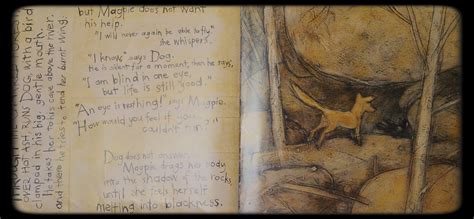 OVER HOT ASH, RUNS DOG, WITH A BIRD
clamped in his big, gentle mouth.
He takes her to his cave above the river,
and there he tries to tend her burnt wing:
but Magpie does not want
his help.
"I will never again be able to fly,"
she whispers.
"I know," says Dog.
He is silent for a moment, then he says,
"I am blind in one eye,
but life is still good."
"An eye is nothing!" says Magpie.
"How would you feel if you
couldn't run?"
Dog does not answer.
Magpie drags her body
into the shadow of the rocks,
until she feels herself
melting into blackness.